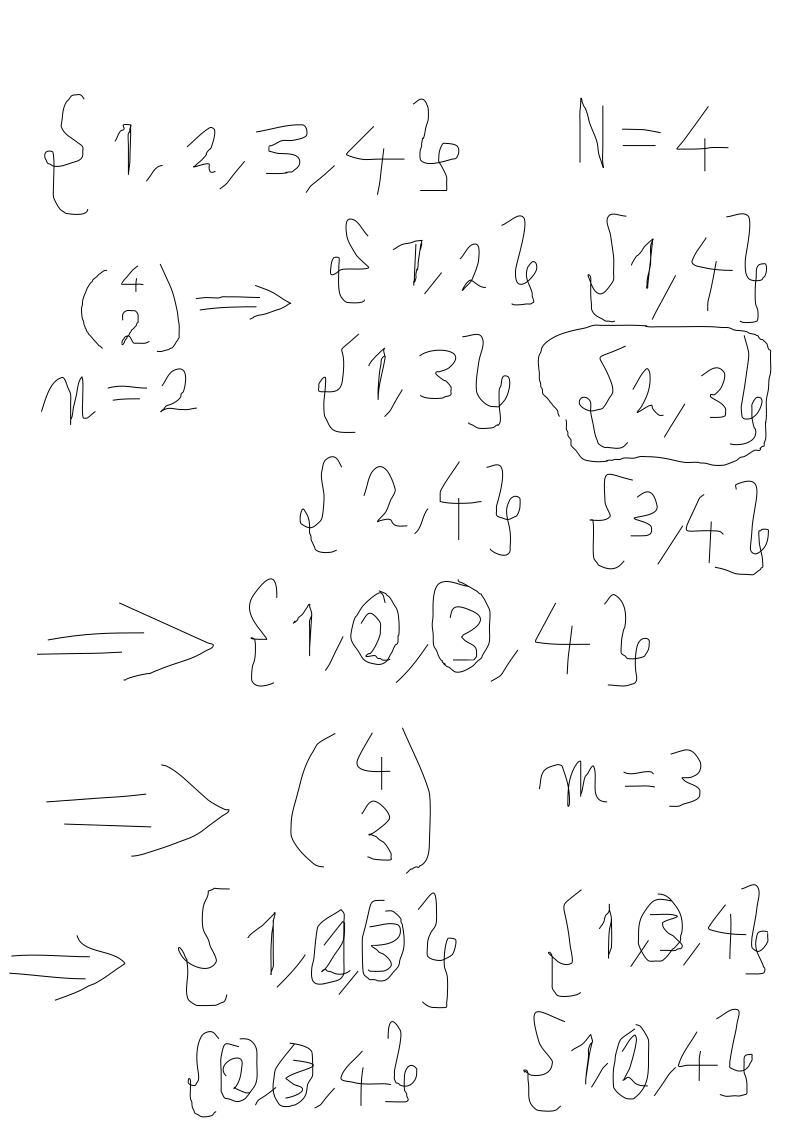 {1, 2, 3, 4} N=4
(4 2) ⇒ {1, 2} {1, 4}
n=2 {1, 3} {2, 3}
{2, 4} {3, 4}
⇒ {1, 2, 3, 4}
⇒ (4 3) m=3
⇒ {1, 2, 3} {1, 3, 4}
{2, 3, 4} {1, 2, 4}